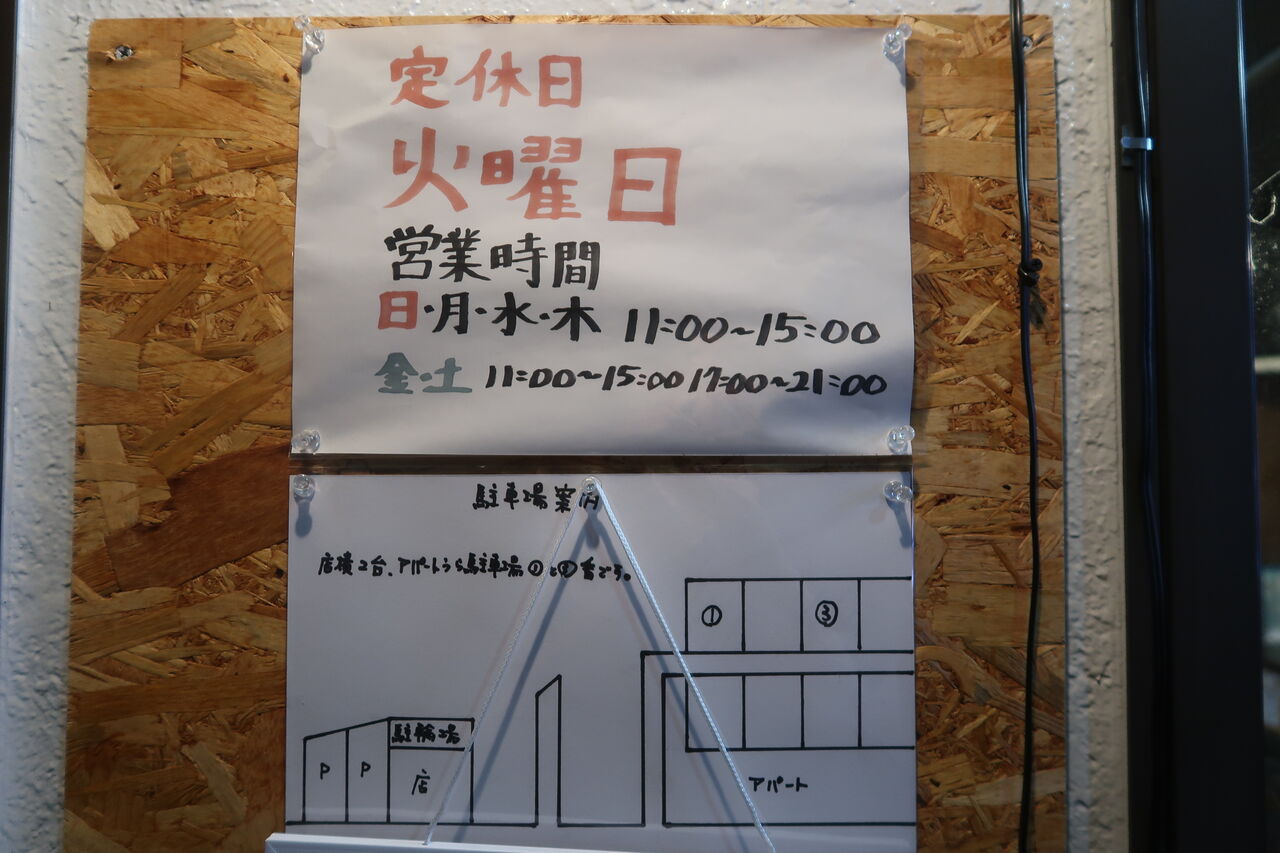 定休日
火曜日
営業時間
日・月・水・木 11:00~15:00
金・土 11:00~15:00 17:00~21:00
駐車場案内
店横2台、アパートうら駐車場①と 番です。
① ③
駐輪場
P P 店
アパート